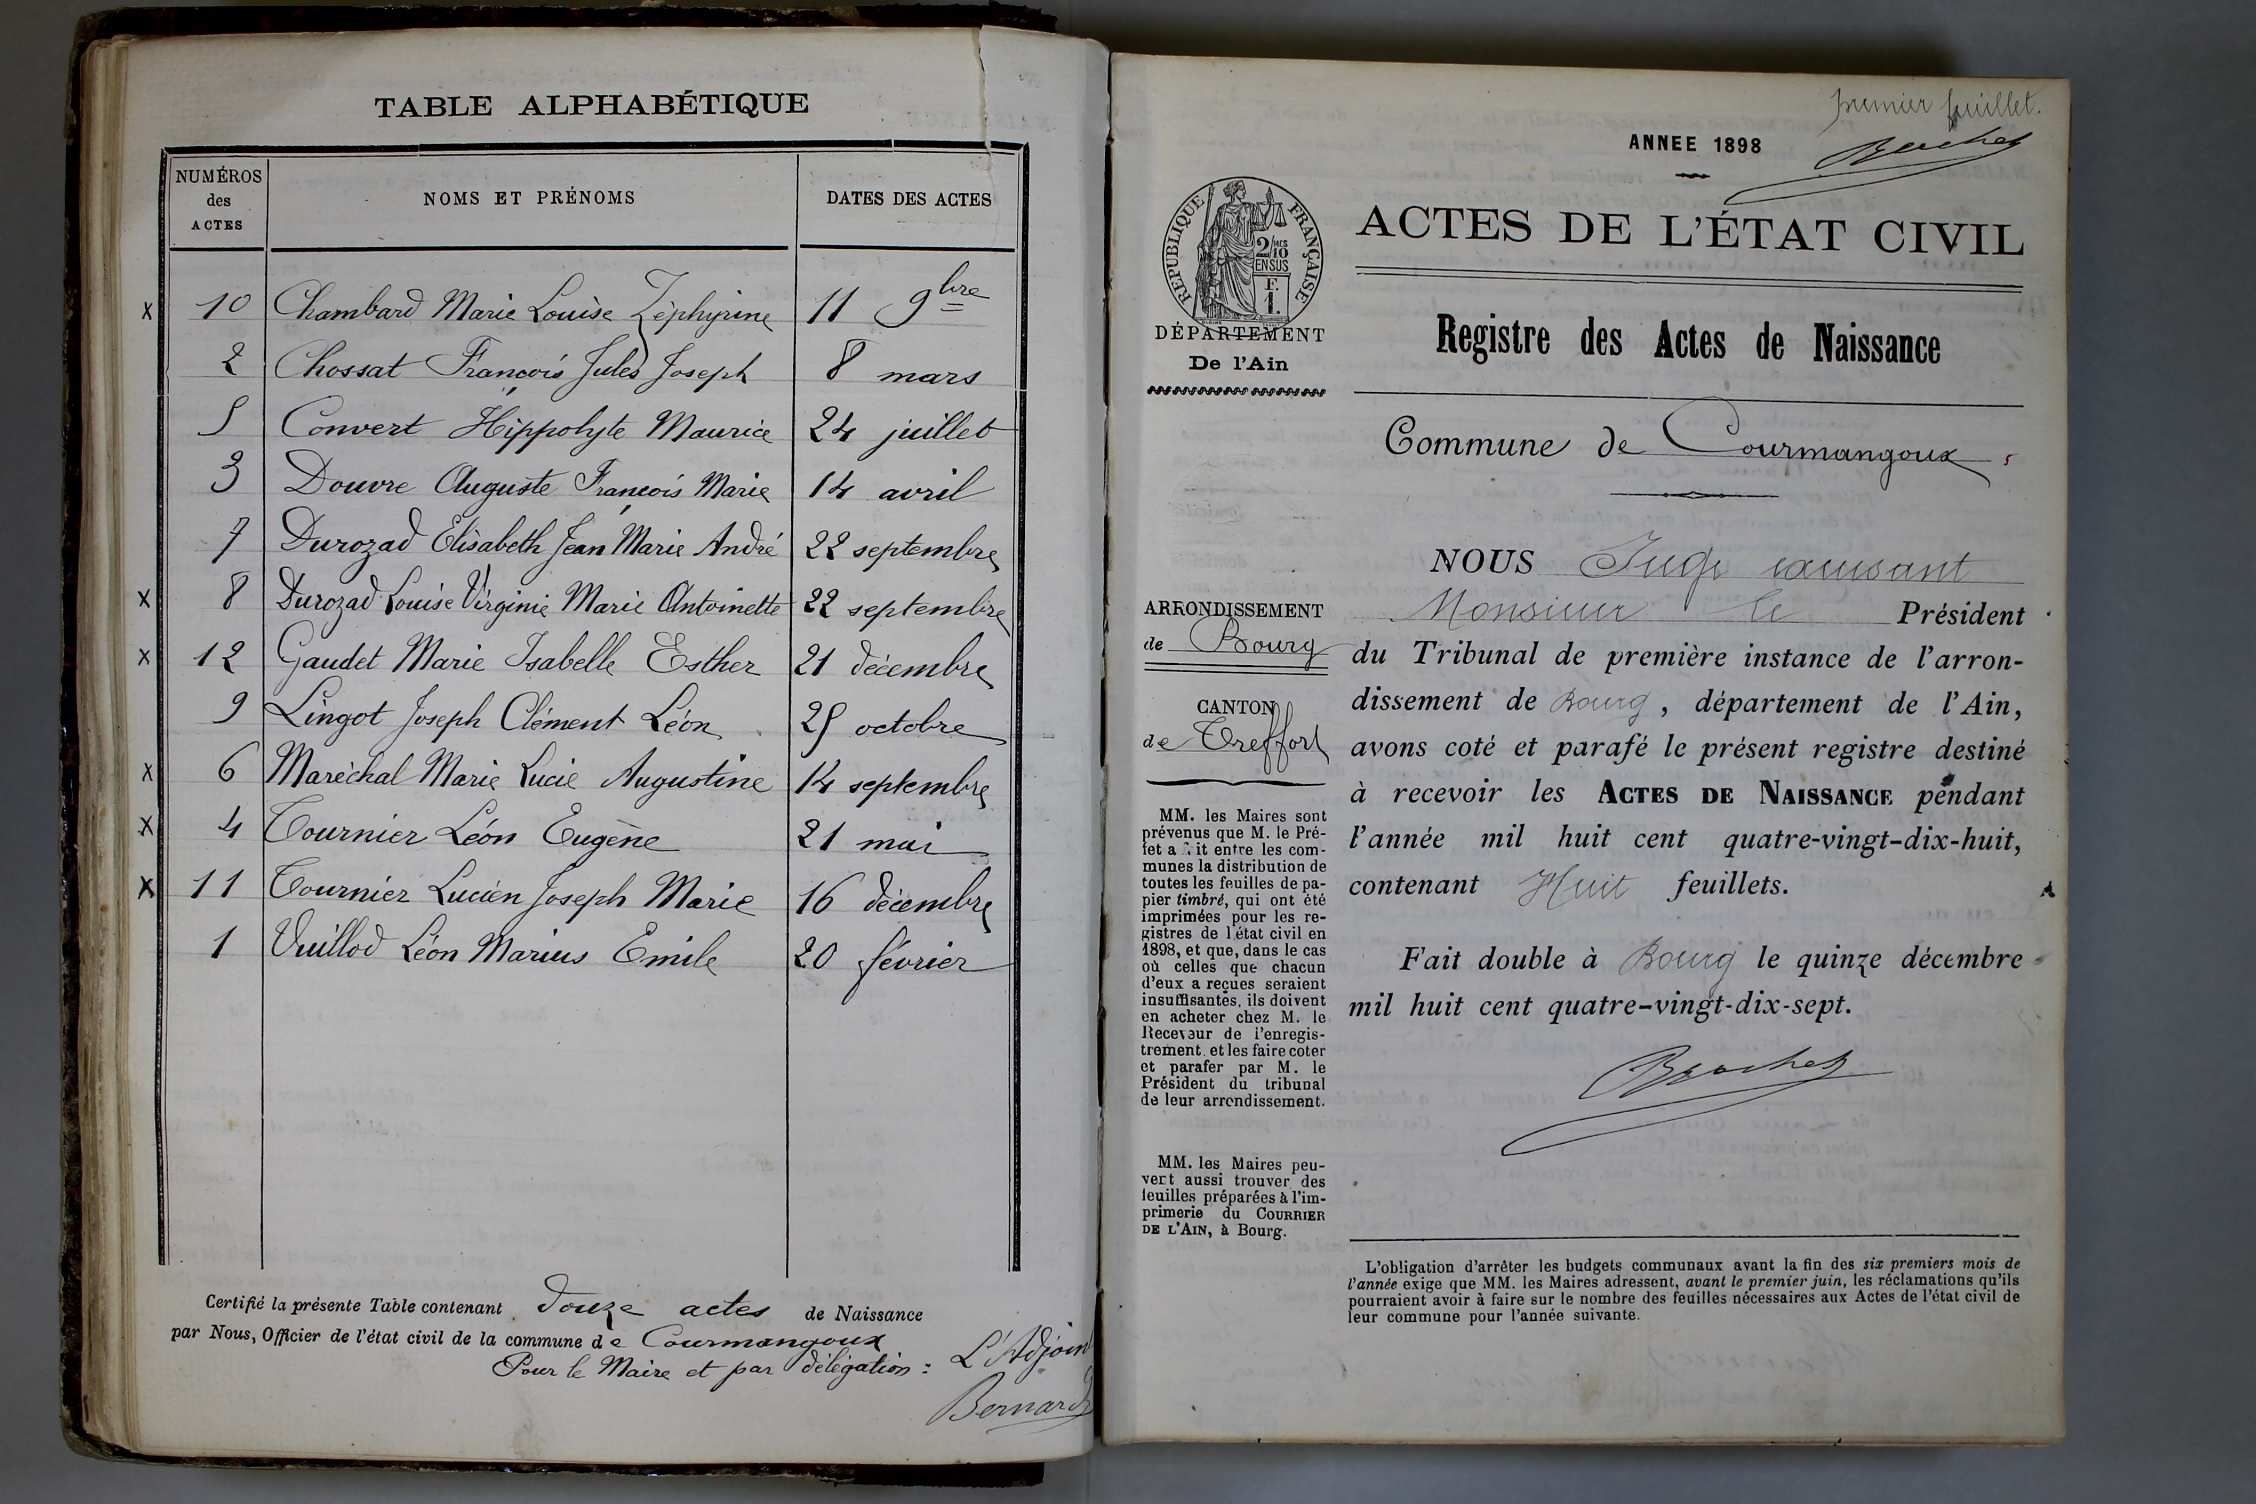 TABLE ALPHABÉTIQUE
NUMÉROS des ACTES
NOMS ET PRÉNOMS
DATES DES ACTES
x 10 Chambard Marie Louise Zéphyrine 11 9bre
2 Chossat François Jules Joseph 8 mars
5 Convert Hippolyte Maurice 24 juillet
3 Douvre Auguste François Marie 14 avril
7 Durozad Elisabeth Jean Marie André 22 septembre
x 8 Durozad Louise Virginie Marie Antoinette 22 septembre
x 12 Gaudet Marie Isabelle Esther 21 décembre
9 Lingot Joseph Clément Léon 25 octobre
x 6 Maréchal Marie Lucie Augustine 14 septembre
x 4 Tournier Léon Eugène 21 mai
x 11 Tournier Lucien Joseph Marie 16 décembre
1 Vuillod Léon Marius Emile 20 février
Certifié la présente Table contenant douze actes de Naissance
par Nous, Officier de l'état civil de la commune de Courmangoux
Pour le Maire et par délégation : L'Adjoint
Bernard
premier feuillet.
ANNEE 1898
RÉPUBLIQUE FRANÇAISE
2/10 MES
EN SUS
F.
1.
ACTES DE L'ÉTAT CIVIL
DÉPARTEMENT
De l'Ain
Registre des Actes de Naissance
Commune de Courmangoux
ARRONDISSEMENT
de Bourg
CANTON
de Treffort
MM. les Maires sont
prévenus que M. le Pré-
fet a fait entre les com-
munes la distribution de
toutes les feuilles de pa-
pier timbré, qui ont été
imprimées pour les re-
gistres de l'état civil en
1898, et que, dans le cas
où celles que chacun
d'eux a reçues seraient
insuffisantes, ils doivent
en acheter chez M. le
Receveur de l'enregis-
trement et les faire coter
et parafer par M. le
Président du tribunal
de leur arrondissement.
MM. les Maires peu-
vent aussi trouver des
feuilles préparées à l'im-
primerie du COURRIER
DE L'AIN, à Bourg.
NOUS Juge remplaçant
Monsieur le Président
du Tribunal de première instance de l'arron-
dissement de Bourg, département de l'Ain,
avons coté et parafé le présent registre destiné
à recevoir les ACTES DE NAISSANCE pendant
l'année mil huit cent quatre-vingt-dix-huit,
contenant Huit feuillets.
Fait double à Bourg le quinze décembre
mil huit cent quatre-vingt-dix-sept.
L'obligation d'arrêter les budgets communaux avant la fin des six premiers mois de
l'année exige que MM. les Maires adressent, avant le premier juin, les réclamations qu'ils
pourraient avoir à faire sur le nombre des feuilles nécessaires aux Actes de l'état civil de
leur commune pour l'année suivante.